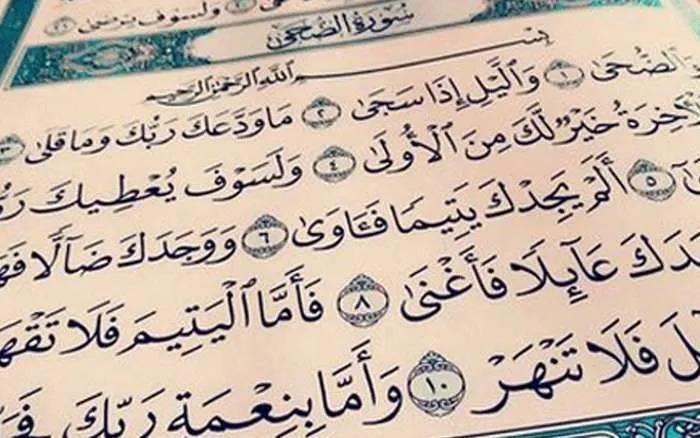 وَلَسَوْفَ يَرْضَىٰ ٢١
سُورَةُ الضُّحَىٰ
بِسْمِ ٱللَّهِ ٱلرَّحْمَٰنِ ٱلرَّحِيمِ
ٱلضُّحَىٰ ١ وَٱلَّيْلِ إِذَا سَجَىٰ ٢ مَا وَدَّعَكَ رَبُّكَ وَمَا قَلَىٰ ٣
خِرَةُ خَيْرٌ لَّكَ مِنَ ٱلْأُولَىٰ ٤ وَلَسَوْفَ يُعْطِيكَ رَبُّ
٥ أَلَمْ يَجِدْكَ يَتِيمًا فَـَٔاوَىٰ ٦ وَوَجَدَكَ ضَآلًّا فَهَ
دَكَ عَآئِلًا فَأَغْنَىٰ ٨ فَأَمَّا ٱلْيَتِيمَ فَلَا تَقْهَ
لَ فَلَا تَنْهَرْ ١٠ وَأَمَّا بِنِعْمَةِ رَبِّكَ فَ